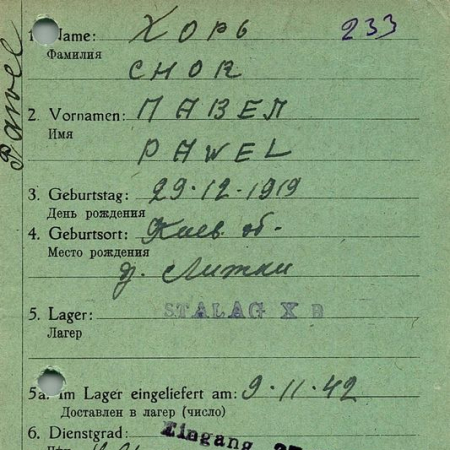 1. Name: ХОРЬ 233
Фамилия
CHOR
2. Vornamen: ПАВЕЛ
Имя
PAWEL
Pawel
3. Geburtstag: 29·12·1919
День рождения
4. Geburtsort: Киев об.
Место рождения
д. Лижки
5. Lager: STALAG X B
Лагерь
5a. Im Lager eingeliefert am: 9·11·42
Доставлен в лагерь (число)
6. Dienstgrad: Eingang